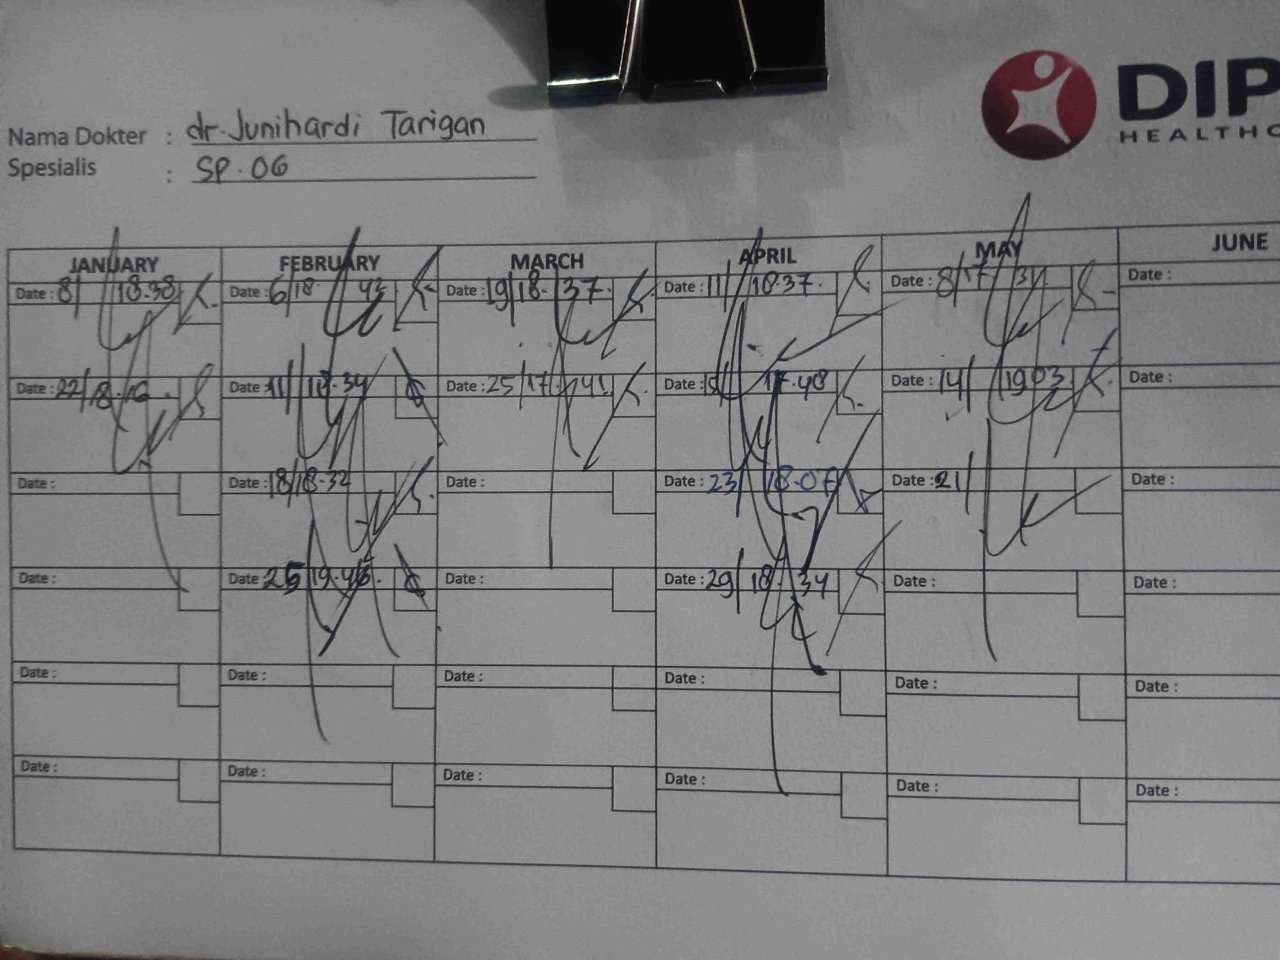 DIP
HEALTHC
Nama Dokter : dr. Junihardi Tarigan
Spesialis : SP. OG
JANUARY FEBRUARY MARCH APRIL MAY JUNE
Date : 8/ 18.38 Date : 6/18 43 Date : 19/18.37. Date : 11/ 18.37. Date : 8/17 31 Date :
Date : 22/18.16. Date : 11/ 18.34 Date : 25/17.41 Date : 17.48 Date : 14/ 1903 Date :
Date : Date : 18/18.32 Date : Date : 23/ 18.07 Date : 21/ Date :
Date : Date : 25 19.43. Date : Date : 29/ 18.34 Date : Date :
Date : Date : Date : Date : Date : Date :
Date : Date : Date : Date : Date : Date :